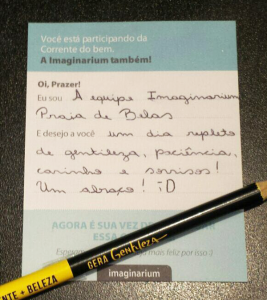 Você está participando da
Corrente do bem.
A Imaginarium também!
Oi, Prazer!
Eu sou A equipe Imaginarium
Praia de Belas
E desejo a você um dia repleto
de gentileza, paciência,
carinho e sorrisos!
Um abraço! :D
AGORA É SUA VEZ D
ESSA
mais feliz por isso :)
GERA GENTILEZA
NTE + BELEZA
imaginarium